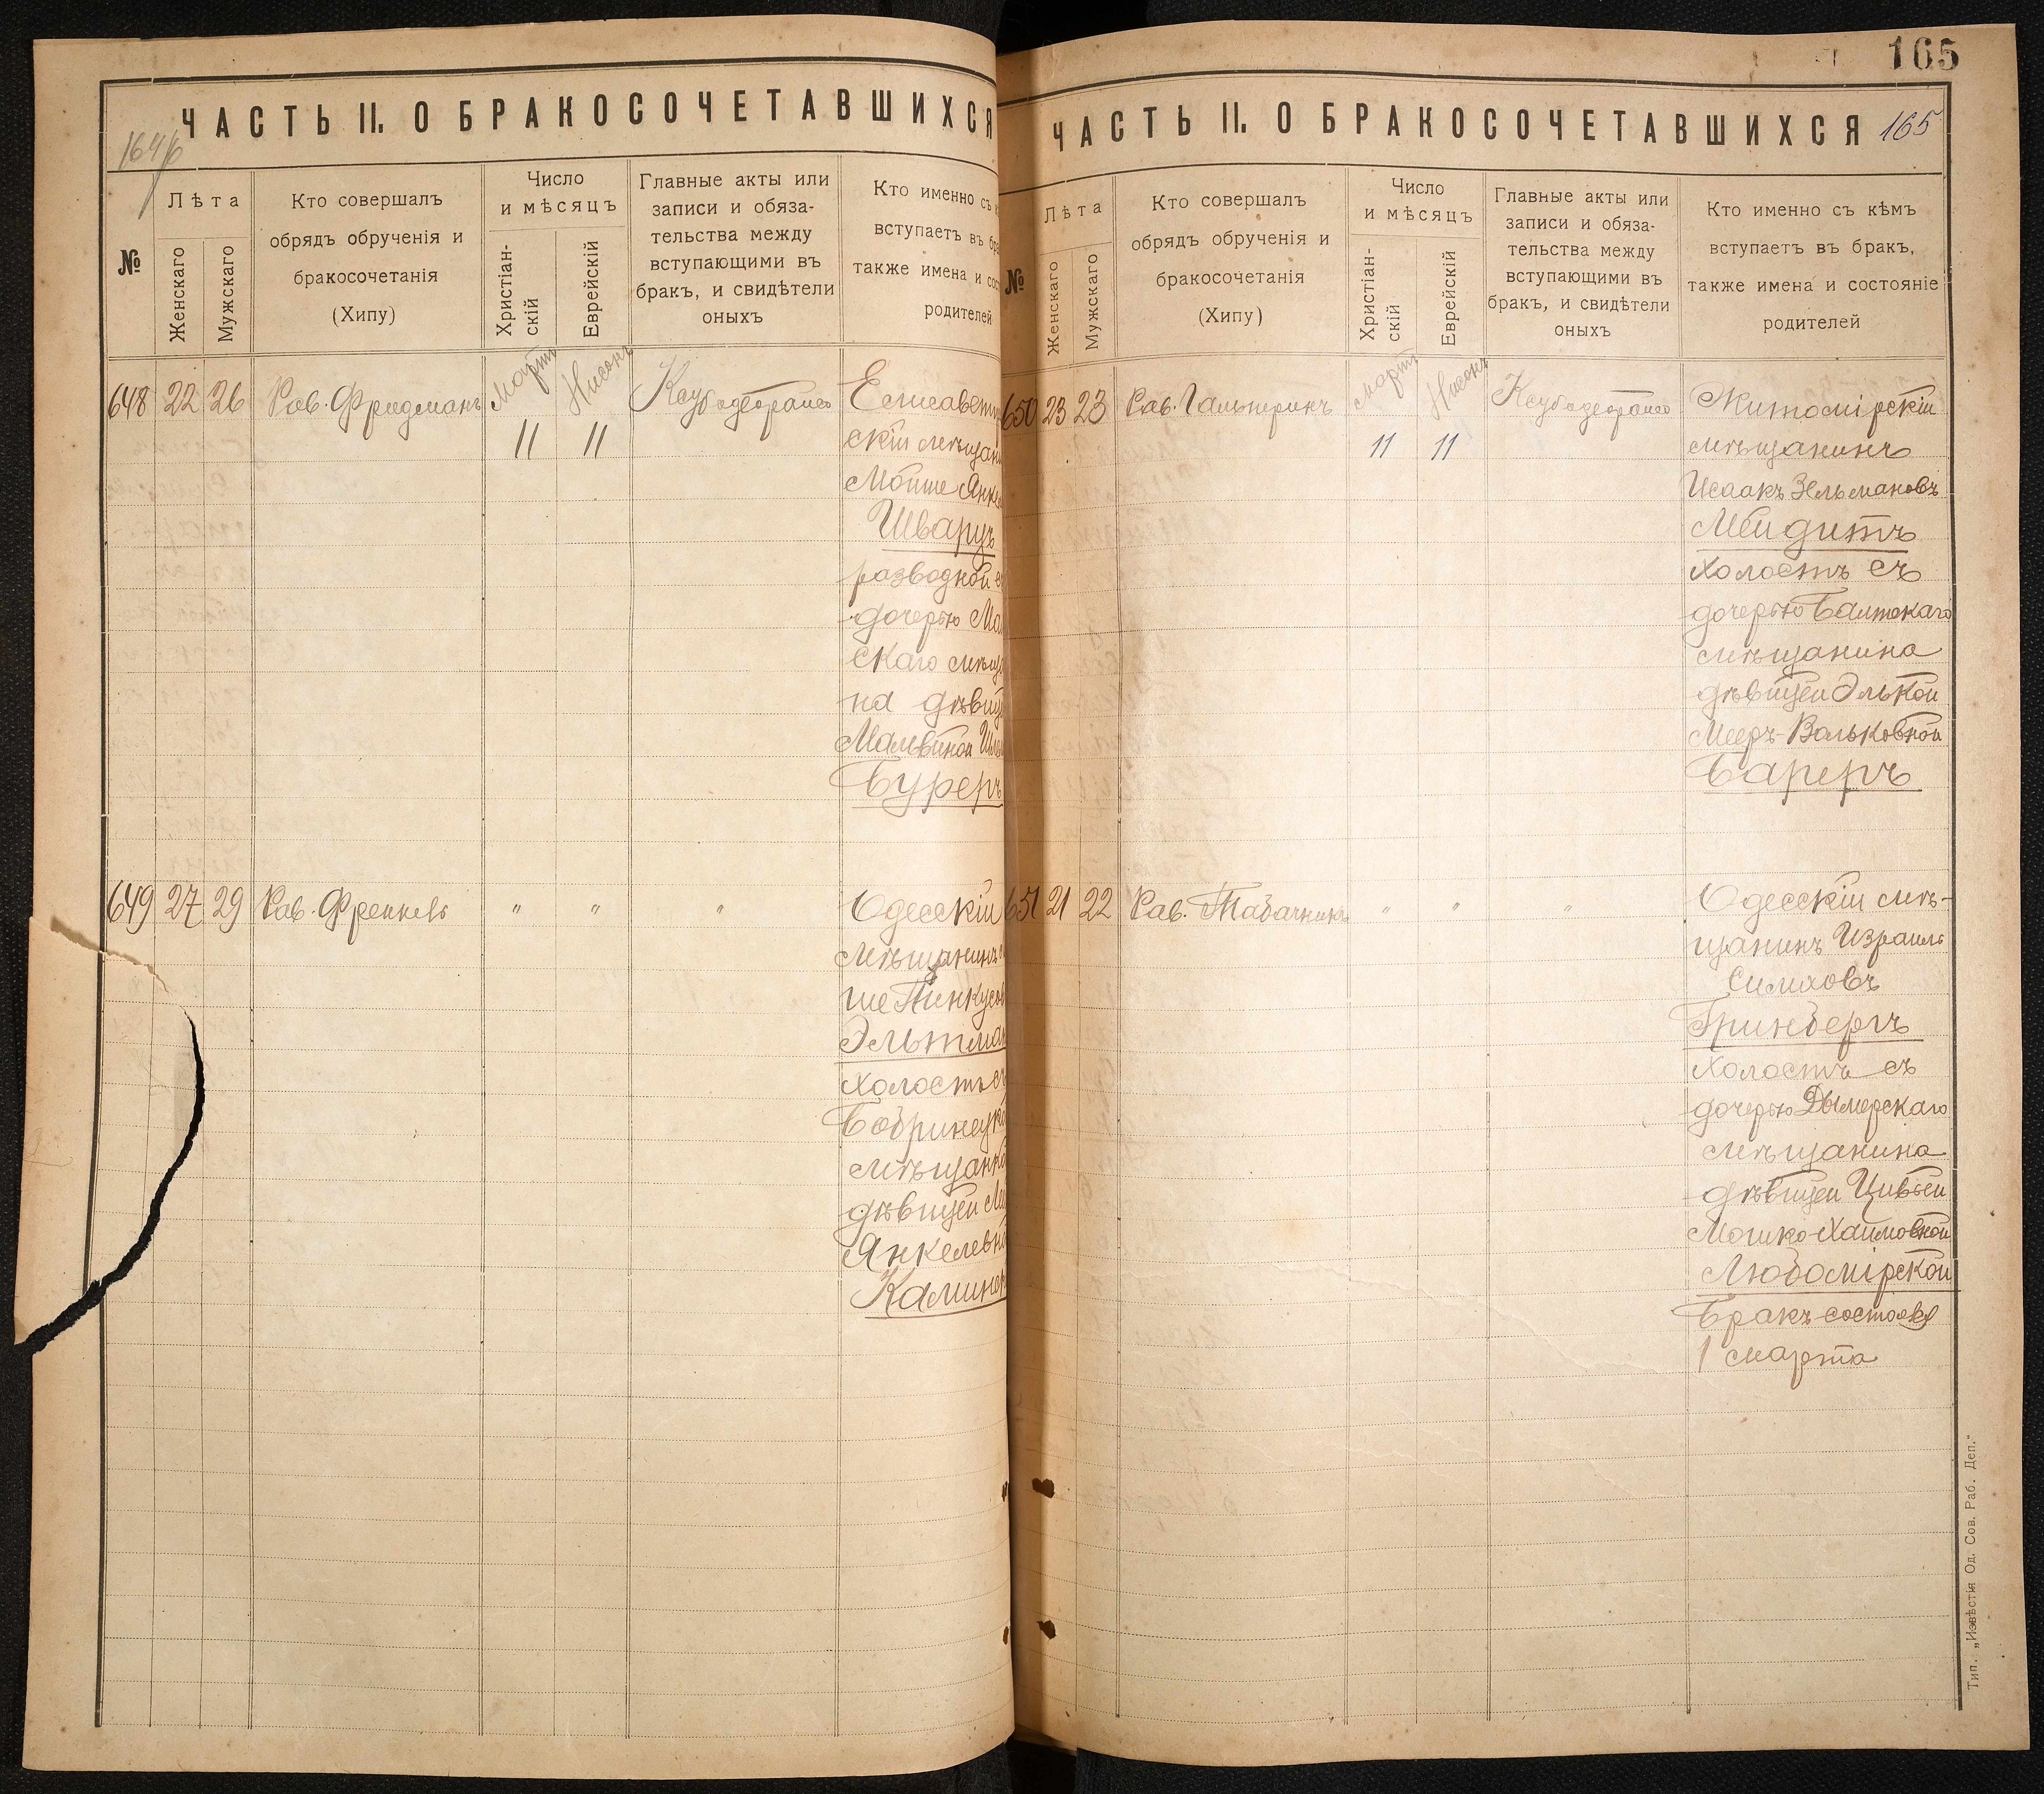 165
ЧАСТЬ II. О БРАКОСОЧЕТАВШИХСЯ
№
Лѣта
Женскаго
Мужскаго
Кто совершалъ
обрядъ обрученія и
бракосочетанія
(Хипу)
Число
и мѣсяцъ
Христіан-
скій
Еврейскій
Главные акты или
записи и обяза-
тельства между
вступающими въ
бракъ, и свидѣтели
оныхъ
Кто именно съ
вступаетъ въ
также имена и
родителей
648 22 26 Рав. Фридманъ
Мартъ
Нисонъ
11 11
скій мѣщан
Мойше Янке
Шварцъ
разводной
дочерью
скаго мѣща
на дѣвиц
Мальвиной
Буреръ
649 27 29 Рав. Френкель " " "
Одесскій
мѣщанинъ
ше Пинкусов
Эльтман
холостъ съ
Бобринецко
мѣщанко
дѣвицей
Янкелевно
Калинер
ЧАСТЬ II. О БРАКОСОЧЕТАВШИХСЯ 165
№
Лѣта
Женскаго
Мужскаго
Кто совершалъ
обрядъ обрученія и
бракосочетанія
(Хипу)
Число
и мѣсяцъ
Христіан-
скій
Еврейскій
Главные акты или
записи и обяза-
тельства между
вступающими въ
бракъ, и свидѣтели
оныхъ
Кто именно съ кѣмъ
вступаетъ въ бракъ,
также имена и состояніе
родителей
650 23 23 Рав. Гальперинъ
Мартъ
Нисонъ
11 11
Житомірскій
мѣщанинъ
Исаакъ Зельмановъ
холостъ съ
дочерью Балтскаго
мѣщанина
дѣвицей Элькой
Мееръ-Вольковной
Бареръ
651 21 22 Рав. Табачникъ " " "
Одесскій мѣ-
щанинъ Израиль
Симховъ
Гринбергъ
холостъ съ
дочерью Дымерскаго
мѣщанина
дѣвицей Цивьей
Мошко-Хаимовной
Любомірской
Бракъ состоялся
1 марта
Тип. „Извѣстія Од. Сов. Раб. Деп.“